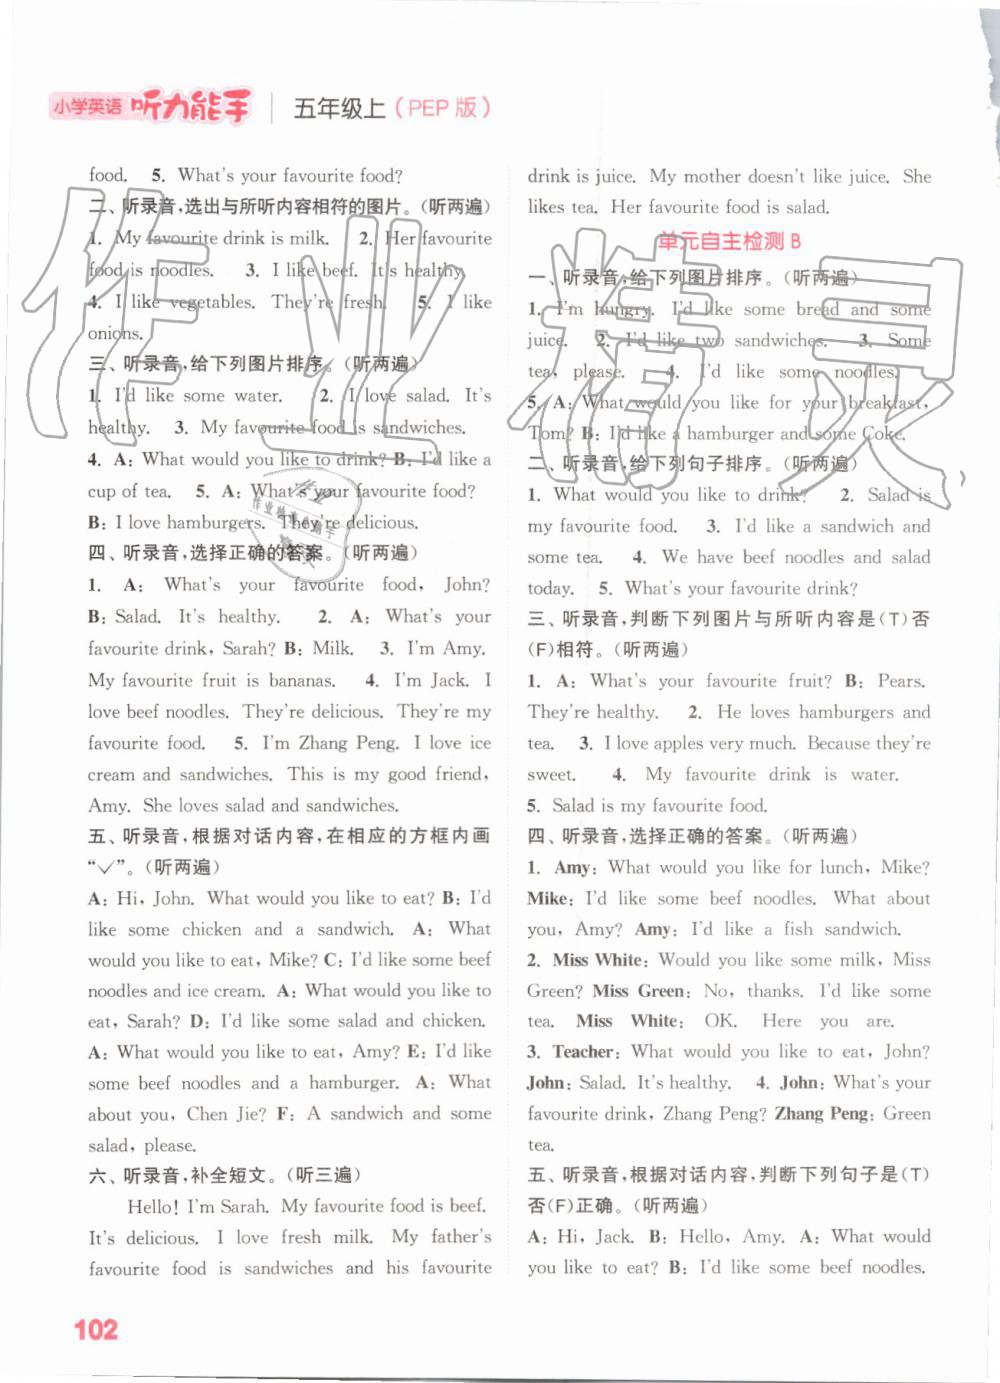 小学英语 听力能手 五年级上（PEP 版）
food. 5. What's your favourite food?
二、听录音,选出与所听内容相符的图片。(听两遍)
1. My favourite drink is milk. 2. Her favourite
food is noodles. 3. I like beef. It's healthy.
4. I like vegetables. They're fresh. 5. I like
onions.
三、听录音,给下列图片排序。(听两遍)
1. I'd like some water. 2. I love salad. It's
healthy. 3. My favourite food is sandwiches.
4. A: What would you like to drink? B: I'd like a
cup of tea. 5. A: What's your favourite food?
B: I love hamburgers. They're delicious.
四、听录音,选择正确的答案。(听两遍)
1. A: What's your favourite food, John?
B: Salad. It's healthy. 2. A: What's your
favourite drink, Sarah? B: Milk. 3. I'm Amy.
My favourite fruit is bananas. 4. I'm Jack. I
love beef noodles. They're delicious. They're my
favourite food. 5. I'm Zhang Peng. I love ice
cream and sandwiches. This is my good friend,
Amy. She loves salad and sandwiches.
五、听录音,根据对话内容,在相应的方框内画
“√”。(听两遍)
A: Hi, John. What would you like to eat? B: I'd
like some chicken and a sandwich. A: What
would you like to eat, Mike? C: I'd like some beef
noodles and ice cream. A: What would you like to
eat, Sarah? D: I'd like some salad and chicken.
A: What would you like to eat, Amy? E: I'd like
some beef noodles and a hamburger. A: What
about you, Chen Jie? F: A sandwich and some
salad, please.
六、听录音,补全短文。(听三遍)
Hello! I'm Sarah. My favourite food is beef.
It's delicious. I love fresh milk. My father's
favourite food is sandwiches and his favourite
drink is juice. My mother doesn't like juice. She
likes tea. Her favourite food is salad.
单元自主检测 B
一、听录音,给下列图片排序。(听两遍)
1. I'm hungry. I'd like some bread and some
juice. 2. I'd like two sandwiches. 3. Some
tea, please. 4. I'd like some noodles.
5. A: What would you like for your breakfast,
Tom? B: I'd like a hamburger and some Coke.
二、听录音,给下列句子排序。(听两遍)
1. What would you like to drink? 2. Salad is
my favourite food. 3. I'd like a sandwich and
some tea. 4. We have beef noodles and salad
today. 5. What's your favourite drink?
三、听录音,判断下列图片与所听内容是(T)否
(F)相符。(听两遍)
1. A: What's your favourite fruit? B: Pears.
They're healthy. 2. He loves hamburgers and
tea. 3. I love apples very much. Because they're
sweet. 4. My favourite drink is water.
5. Salad is my favourite food.
四、听录音,选择正确的答案。(听两遍)
1. Amy: What would you like for lunch, Mike?
Mike: I'd like some beef noodles. What about
you, Amy? Amy: I'd like a fish sandwich.
2. Miss White: Would you like some milk, Miss
Green? Miss Green: No, thanks. I'd like some
tea. Miss White: OK. Here you are.
3. Teacher: What would you like to eat, John?
John: Salad. It's healthy. 4. John: What's your
favourite drink, Zhang Peng? Zhang Peng: Green
tea.
五、听录音,根据对话内容,判断下列句子是(T)
否(F)正确。(听两遍)
A: Hi, Jack. B: Hello, Amy. A: What would
you like to eat? B: I'd like some beef noodles.
102
作业精灵